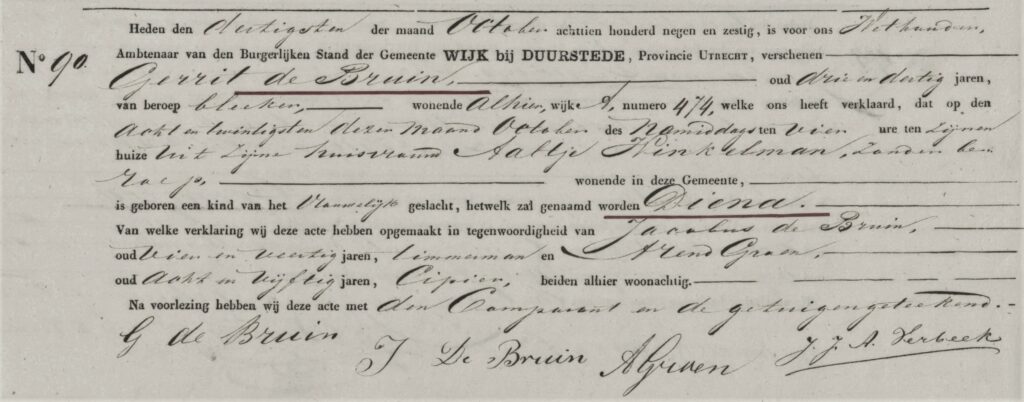 Heden den dertigsten der maand October achttien honderd negen en zestig, is voor ons Wethouder,
No 90. Ambtenaar van den Burgerlijken Stand der Gemeente WIJK bij DUURSTEDE, Provincie UTRECHT, verschenen
Gerrit de Bruin, oud drie en dertig jaren,
van beroep bleeker, wonende Alhier, wijk numero 474, welke ons heeft verklaard, dat op den
Acht en twintigsten dezer maand October des Namiddags ten vier ure ten zijnen
huize uit zijne huisvrouw Aaltje Winkelman, zonder be-
roep, wonende in deze Gemeente,
is geboren een kind van het Vrouwelijk geslacht, hetwelk zal genaamd worden Diena.
Van welke verklaring wij deze acte hebben opgemaakt in tegenwoordigheid van Jacobus de Bruin,
oud Vier en veertig jaren, timmerman en Arend Groen,
oud Acht en vijftig jaren, Cipier, beiden alhier woonachtig.
Na voorlezing hebben wij deze acte met den Comparant en de getuigen geteekend.
G de Bruin
J De Bruin AGroen J. J. A. Verbeek